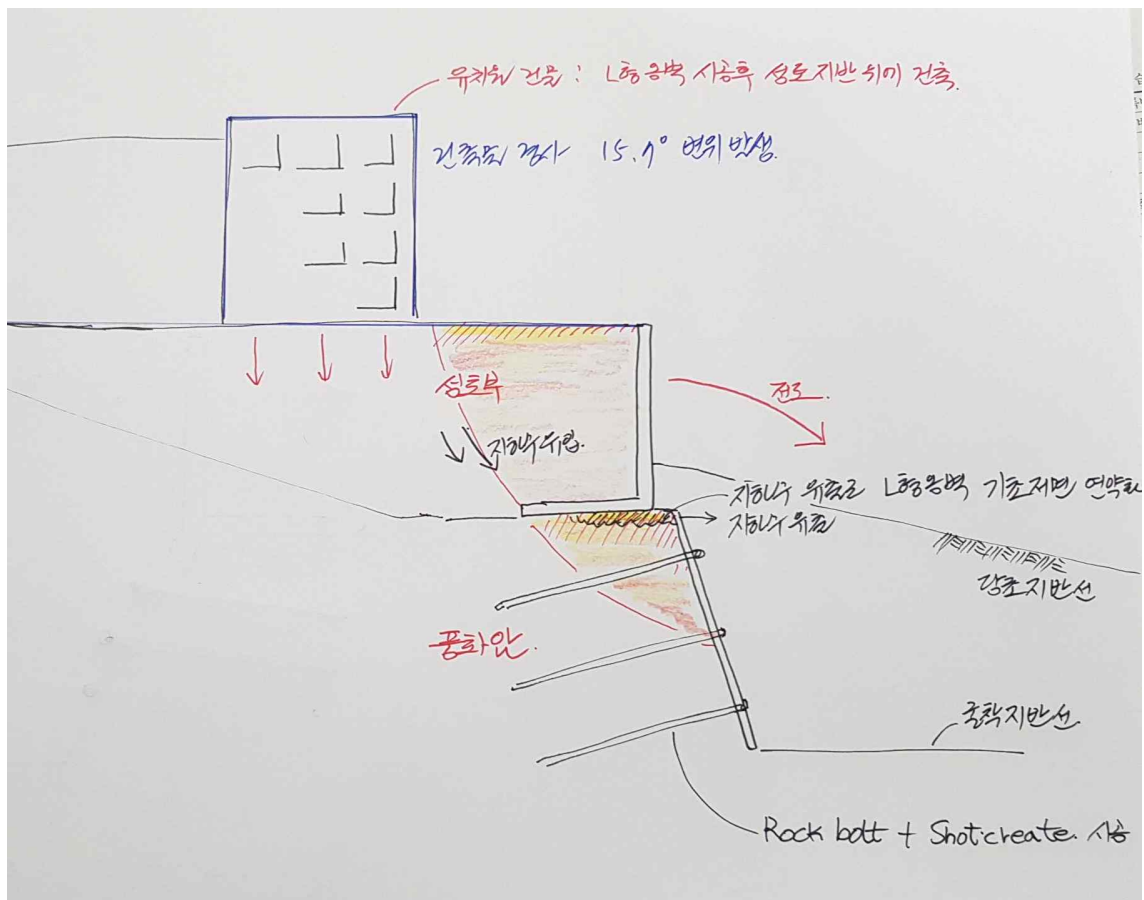 유치원 건물 : L형옹벽 시공후 성토지반 위에 건축.
건축물 경사 15.7° 변위 발생.
성토부
전도.
지하수 유입.
지하수 유출로 L형옹벽 기초저면 연약화
지하수 유출
당초지반선
풍화암.
굴착지반선
Rock bolt + Shotcreate. 시공